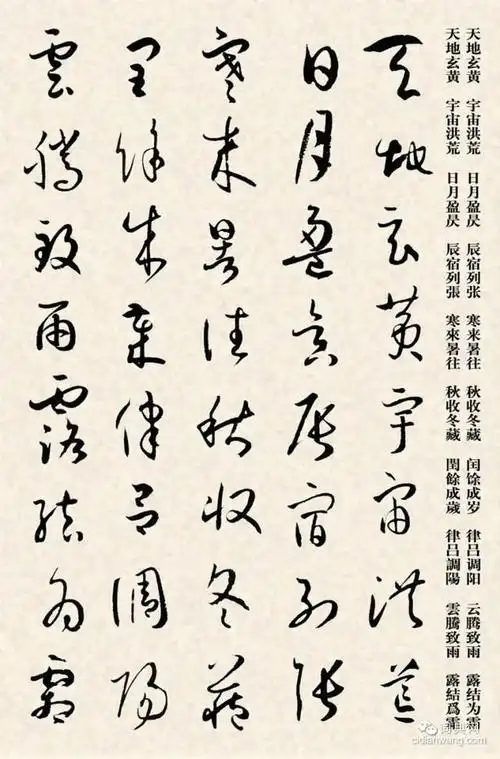 天地玄黄 宇宙洪荒 日月盈昃 辰宿列张 寒来暑往 秋收冬藏 闰馀成岁 律吕调阳 云腾致雨 露结为霜
天地玄黄 宇宙洪荒 日月盈昃 辰宿列張 寒來暑往 秋收冬藏 閏餘成歲 律吕調陽 雲騰致雨 露結爲霜
天地玄黄宇宙洪荒
日月盈昃辰宿列張
寒来暑往秋收冬藏
閏餘成歲律吕調陽
雲騰致雨露結為霜
词典网
cidianwang.com